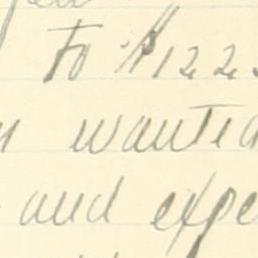 To $122
wanted
and expe